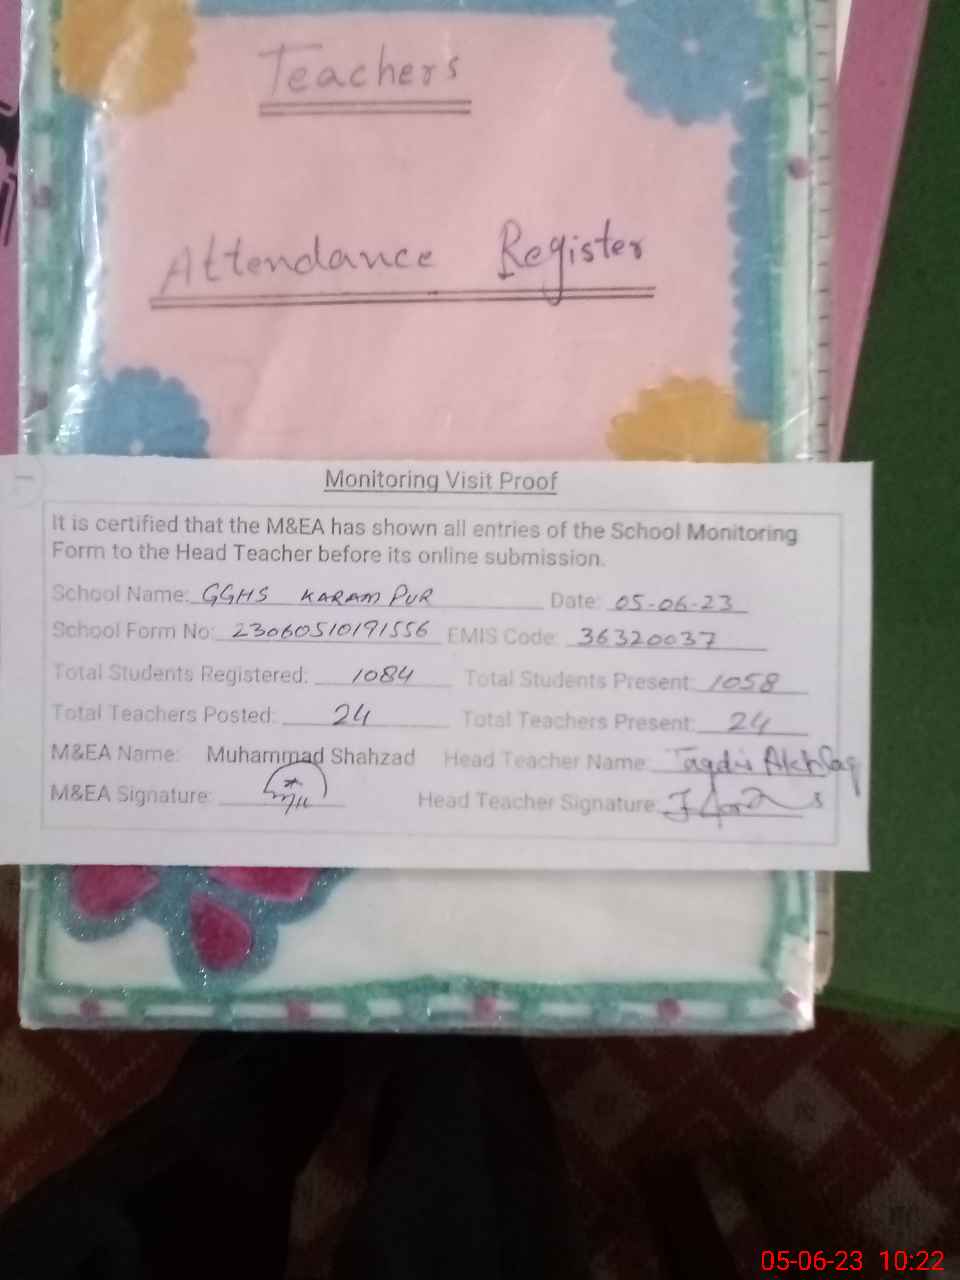 Teachers
Attendance Register
Monitoring Visit Proof
It is certified that the M&EA has shown all entries of the School Monitoring
Form to the Head Teacher before its online submission.
School Name: GGHS KARAM PUR Date: 05-06-23
School Form No: 23060510191556 EMIS Code: 36320037
Total Students Registered: 1084 Total Students Present: 1058
Total Teachers Posted: 24 Total Teachers Present: 24
M&EA Name: Muhammad Shahzad Head Teacher Name: Taqdis Akhlaq
M&EA Signature: Head Teacher Signature:
05-06-23 10:22